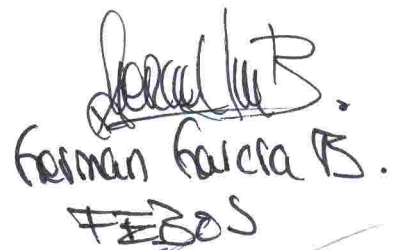 German Garcia B.
FEBOS